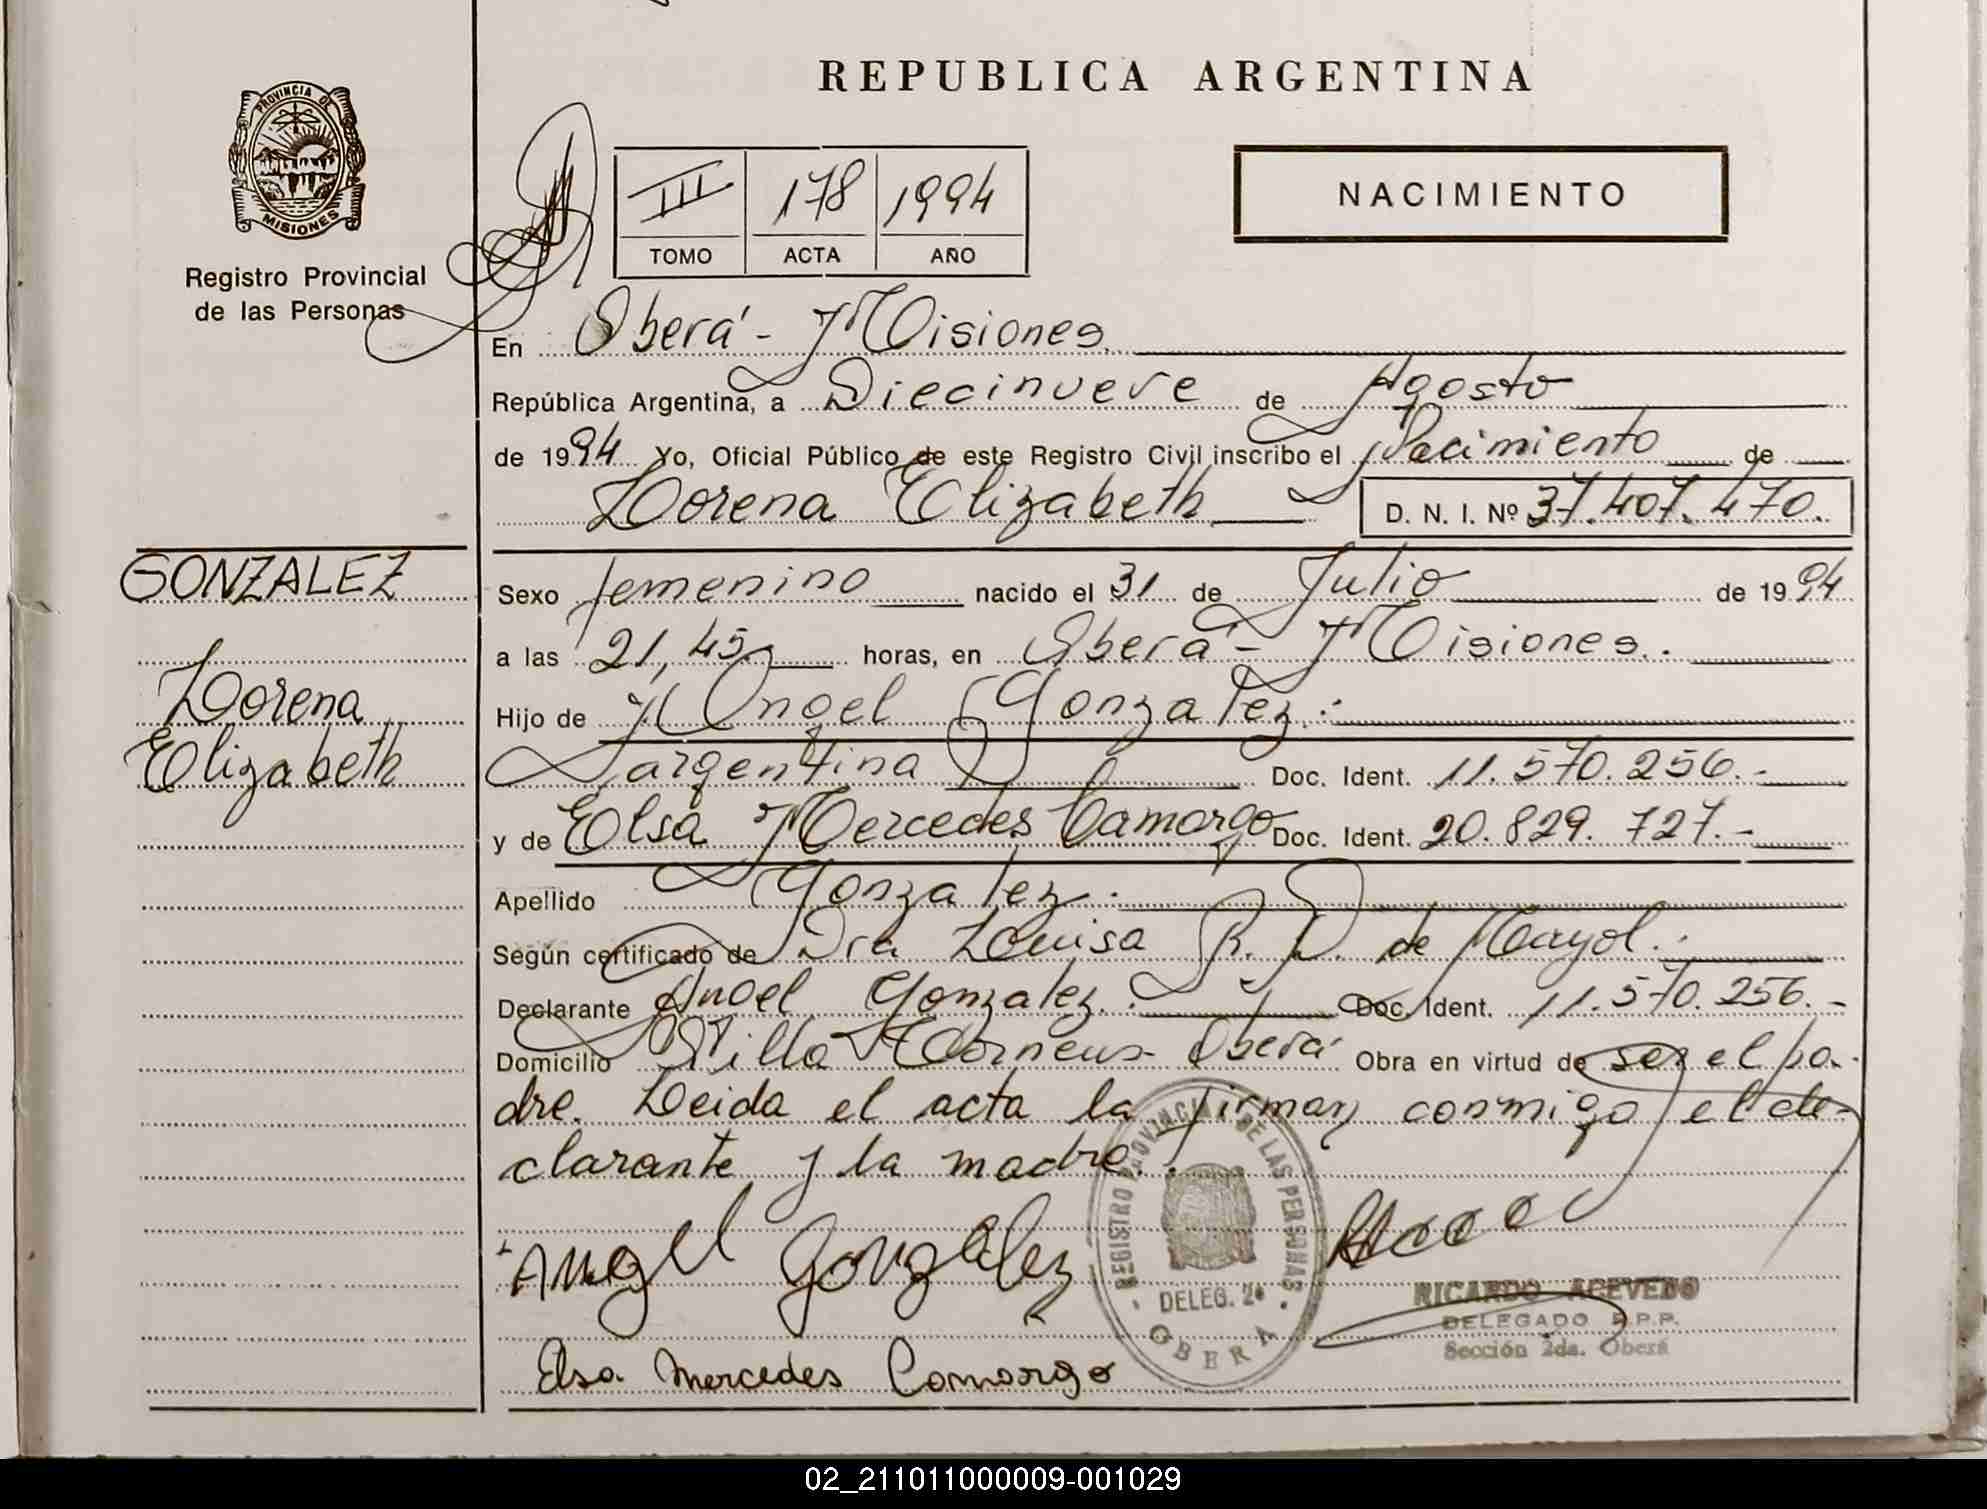 REPUBLICA ARGENTINA
PROVINCIA DE
MISIONES
Registro Provincial
de las Personas
III 178 1994
TOMO ACTA AÑO
NACIMIENTO
En Oberá - Misiones
República Argentina, a Diecinueve de Agosto
de 1994 Yo, Oficial Público de este Registro Civil inscribo el Nacimiento de
Lorena Elizabeth D. N. I. Nº 37.407.470.
GONZALEZ
Lorena
Elizabeth
Sexo femenino nacido el 31 de Julio de 1994
a las 21,45 horas, en Oberá - Misiones.
Hijo de Angel Gonzalez.
argentina Doc. Ident. 11.570.256.-
y de Elsa Mercedes Camargo Doc. Ident. 20.829.727.-
Apellido Gonzalez.
Según certificado de Dra Louisa R. D. de Mayol.
Declarante Angel Gonzalez. Doc. Ident. 11.570.256.-
Domicilio Villa Oberá Obra en virtud de ser el pa-
dre. Leida el acta la firman conmigo el de-
clarante y la madre.
Angel Gonzalez
Elsa Mercedes Camargo
REGISTRO PROVINCIAL DE LAS PERSONAS
DELEG. 2ª
OBERA
RICARDO ACEVEDO
DELEGADO R.P.P.
Sección 2da. Oberá
02_211011000009-001029